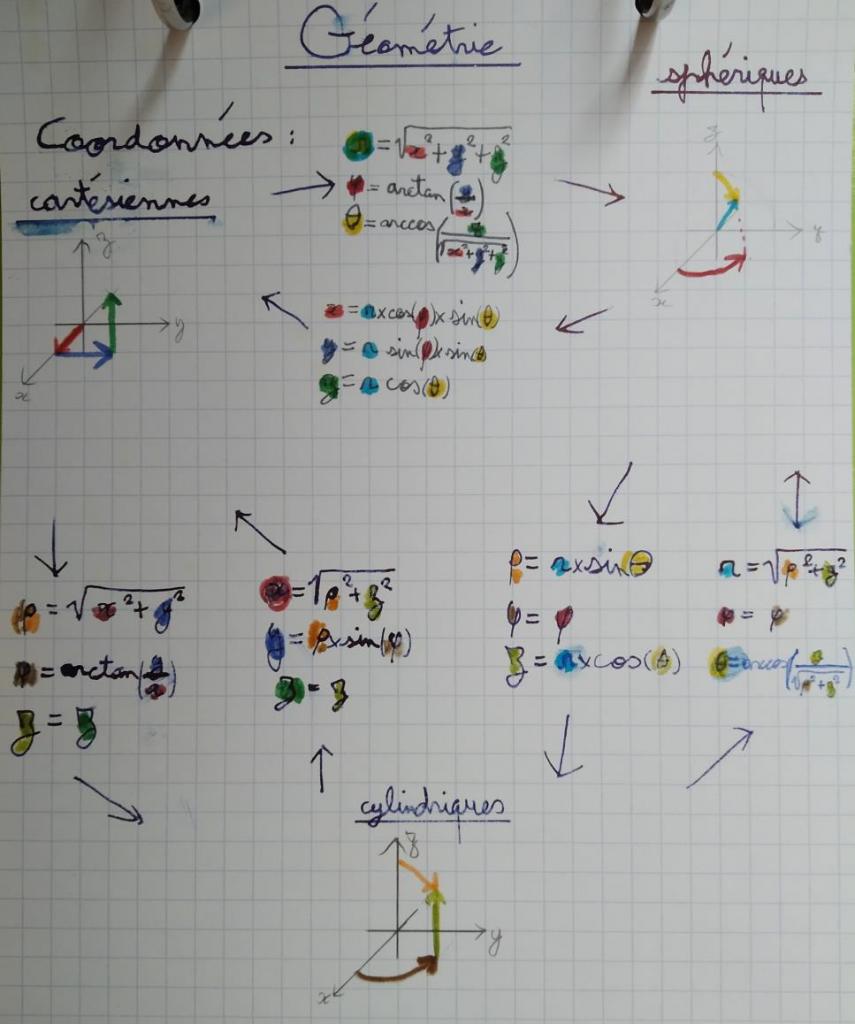 Géométrie
sphériques
Coordonnées :
cartésiennes
r = √(x² + y² + z²)
φ = arctan(y/x)
θ = arccos(z/√(x² + y² + z²))
z
y
x
z
y
x
x = r × cos(φ) × sin(θ)
y = r sin(φ) × sin(θ)
z = r cos(θ)
ρ = √(x² + y²)
φ = arctan(y/x)
z = z
x = √(ρ² + z²)
y = ρ × sin(φ)
z = z
ρ = r × sin θ
φ = φ
z = r × cos(θ)
r = √(ρ² + z²)
φ = φ
θ = arccos(z/√(ρ² + z²))
cylindriques
z
y
x